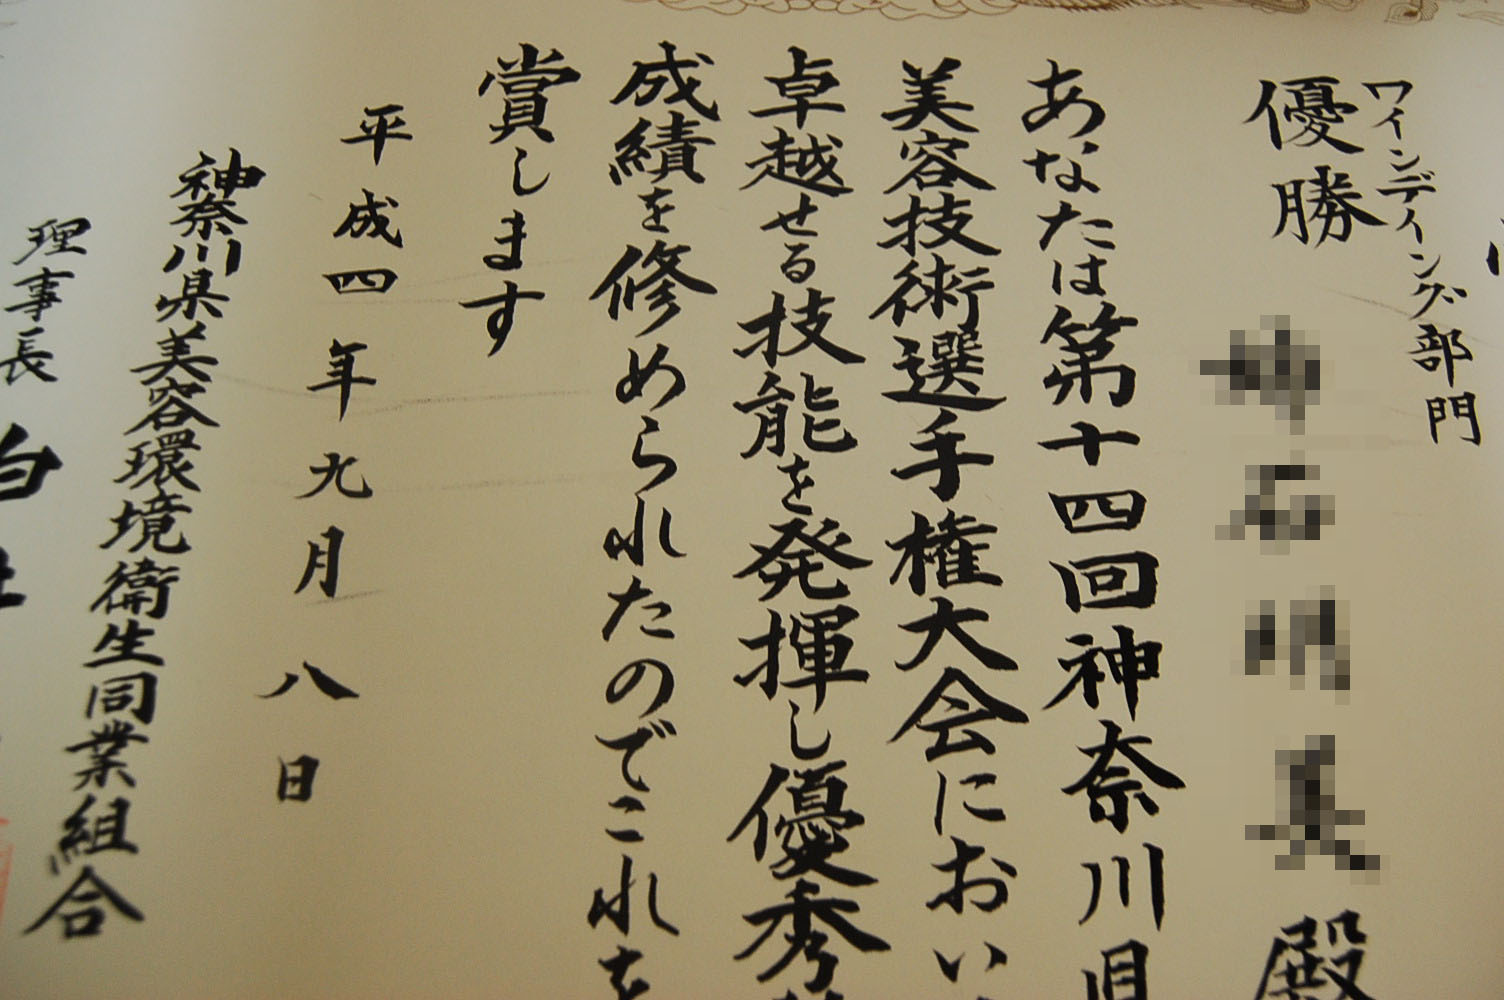 ワインディング部門
優勝
殿
あなたは第十四回神奈川県
美容技術選手権大会におい
卓越せる技能を発揮し優秀
成績を修められたのでこれを
賞します
平成四年九月八日
神奈川県美容環境衛生同業組合
理事長